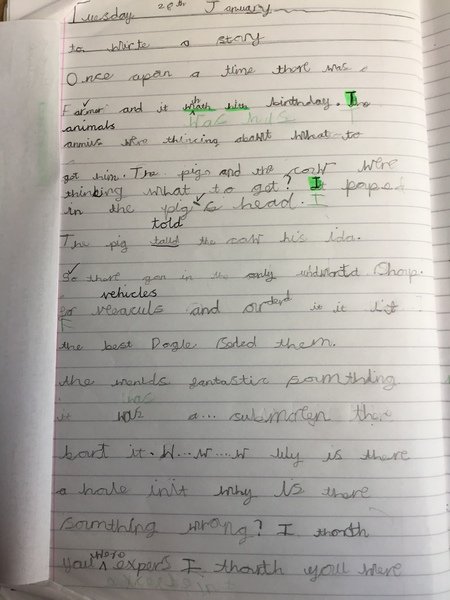 Tuesday 28th January
to write a story
Once apon a time there was a
Farmer and it birthday. I
was his
animals
were thincing about what to
get him. The pigs and the cow were
thinking what to get? I poped
in the pig's head. I
told
The pig the cow his ida.
So there gon in the only Shop.
vehicles
and orderd it
the best Dogle them.
the fantastic somthing
was
it was a... submolen
it. W...w...w is there
a hole init why is there
somthing wrong? I thorth
were
you expers I thorth you were